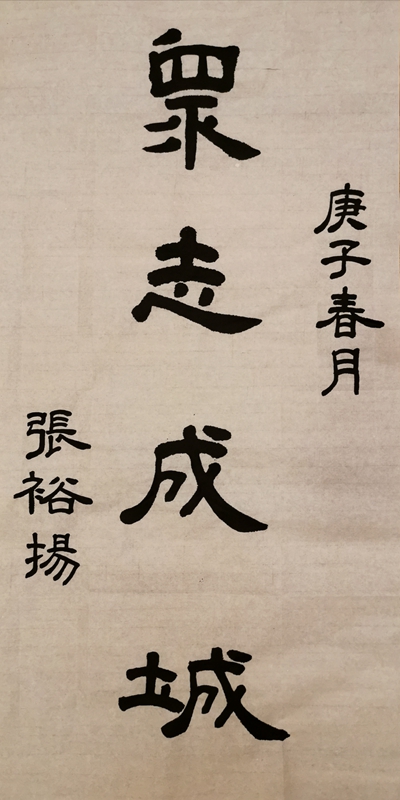 庚子春月
眾志成城
張裕揚